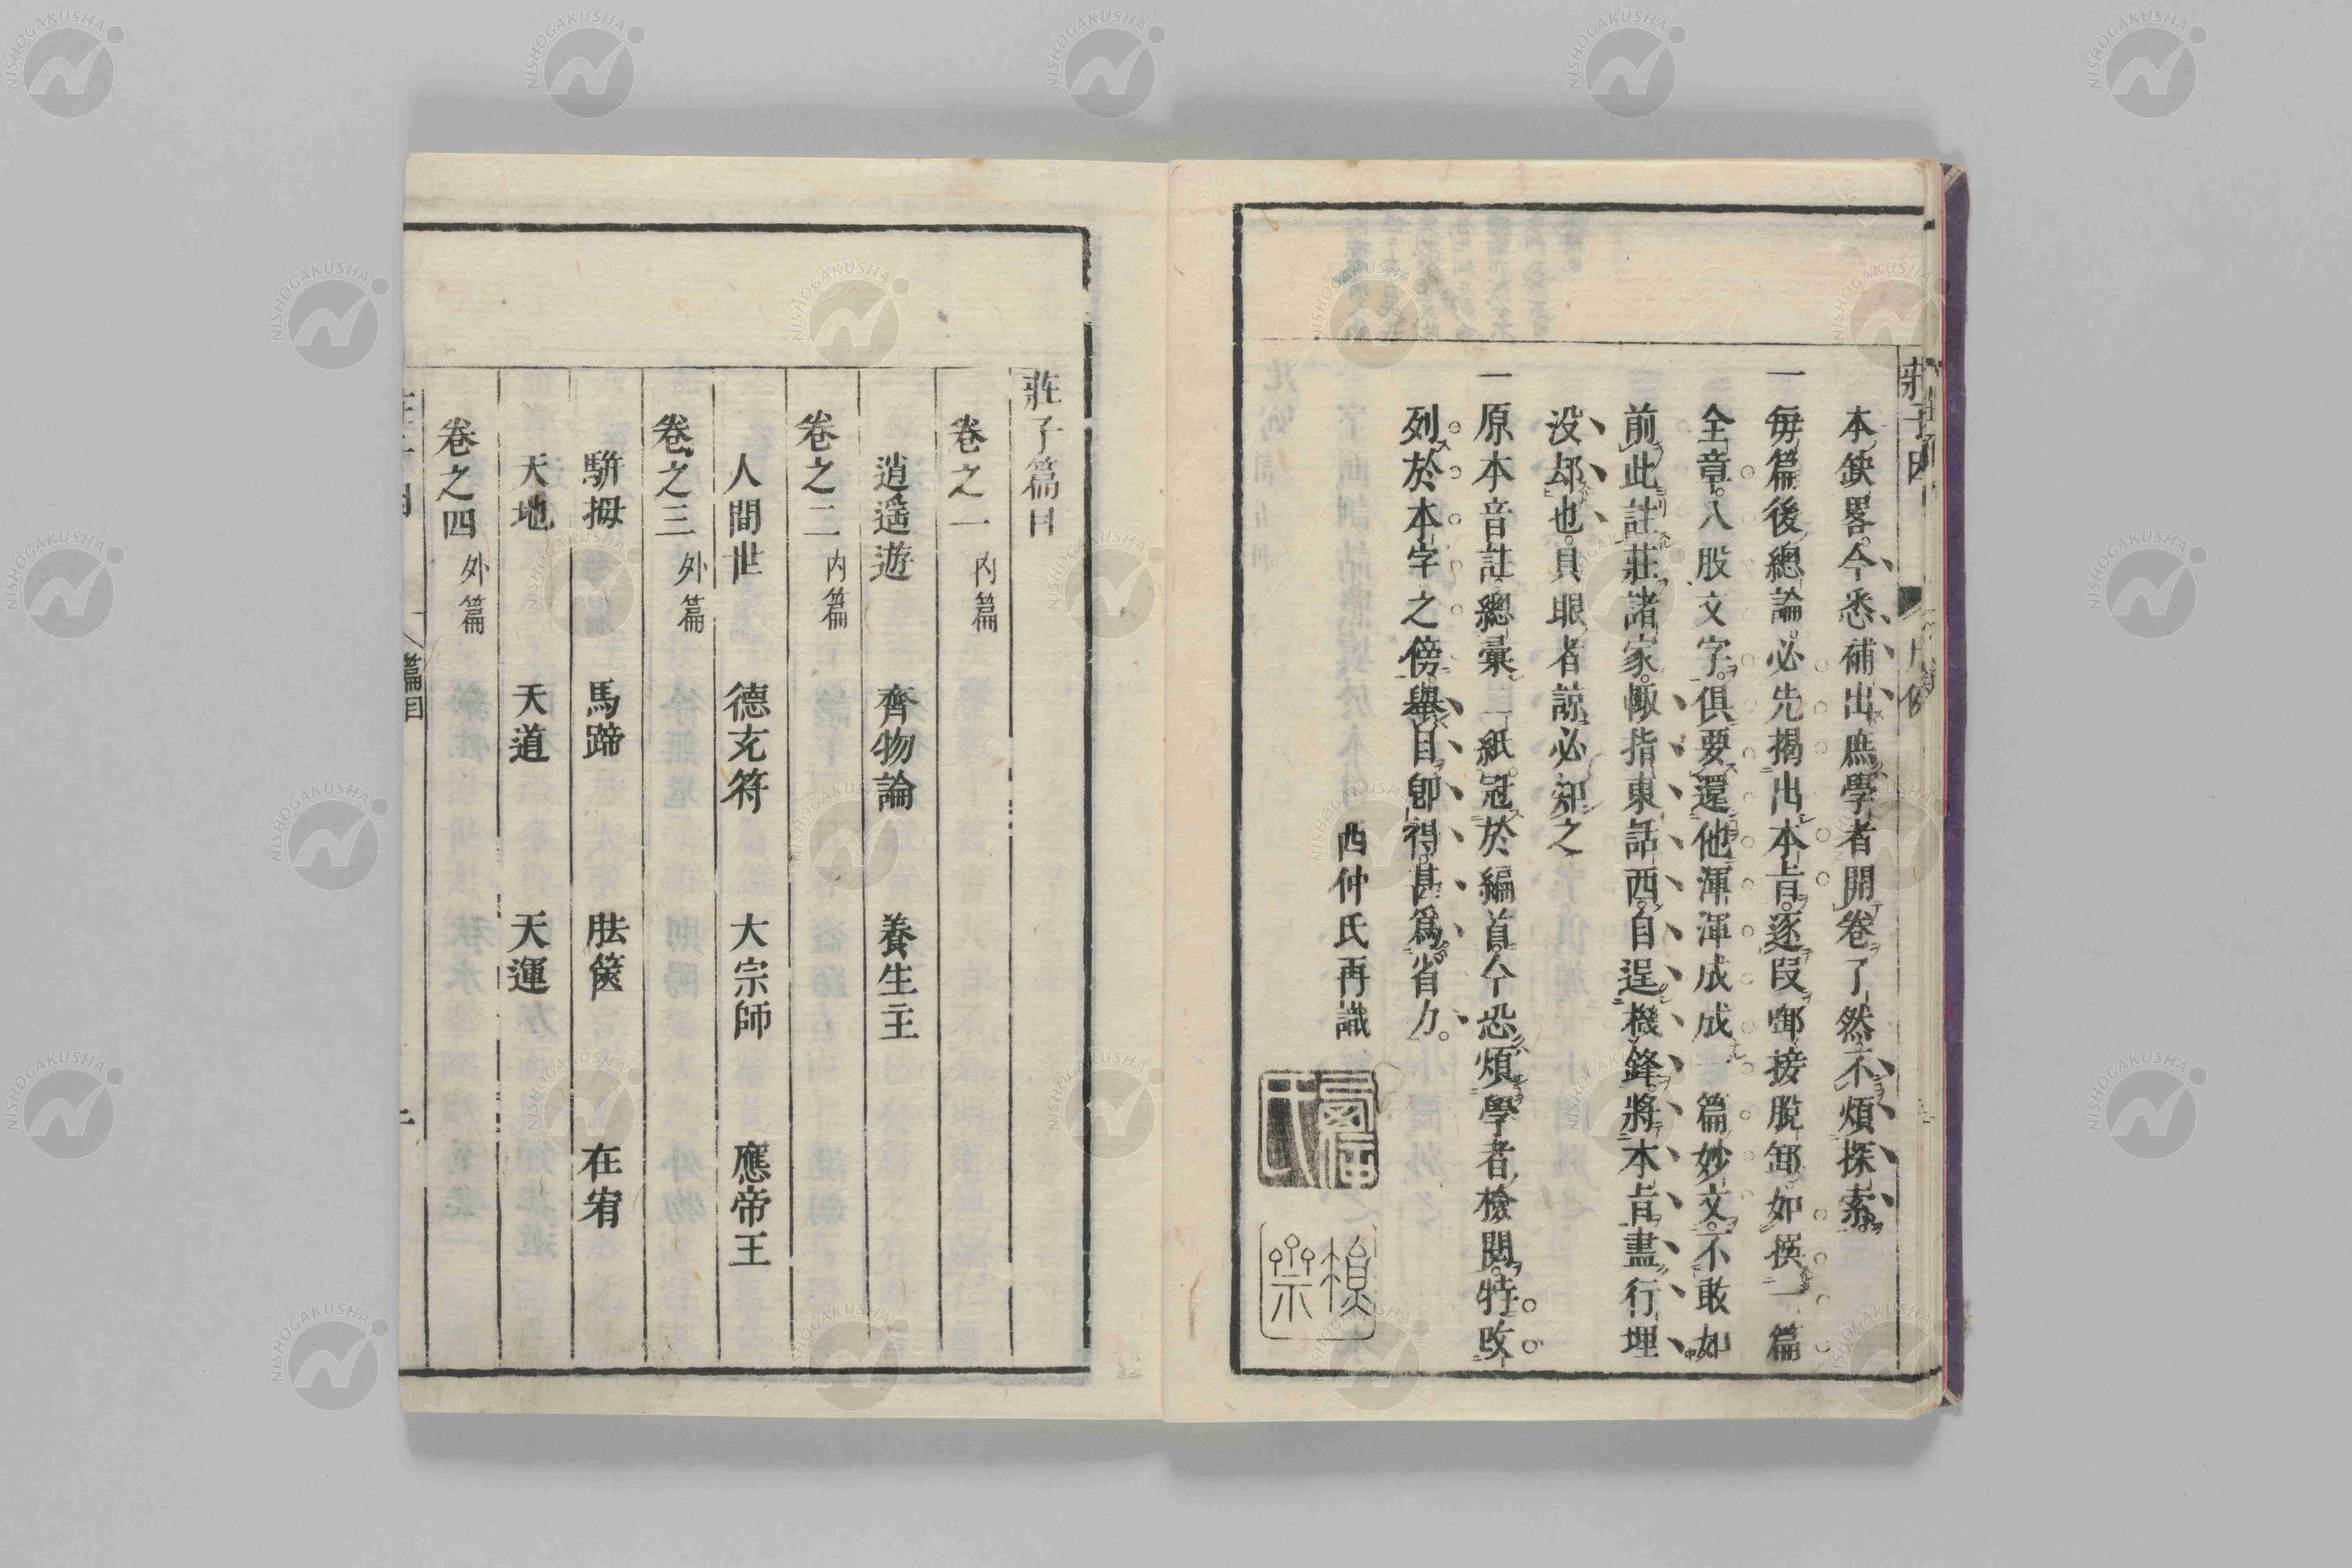 本缺畧今悉補出庶學者開卷了然不煩探索
一毎篇後總論必先揭出本旨逐段卸接脫卸如換一篇
全章八股文字俱要還他渾渾成成一篇妙文不敢如
前此註莊諸家輙指東話西自逞機鋒將本旨盡行埋
没却也具眼者諒必知之
一原本音註總彙二紙冠於編首今恐煩學者檢閱特攺
列於本字之傍舉目卽得甚爲省力
西仲氏再識
莊子篇目
卷之一 内篇
逍遥遊 齊物論 養生主
卷之二 内篇
人間世 德充符 大宗師 應帝王
卷之三 外篇
騈拇 馬蹄 胠篋 在宥
天地 天道 天運
卷之四 外篇
篇目
NISHOGAKUSHA